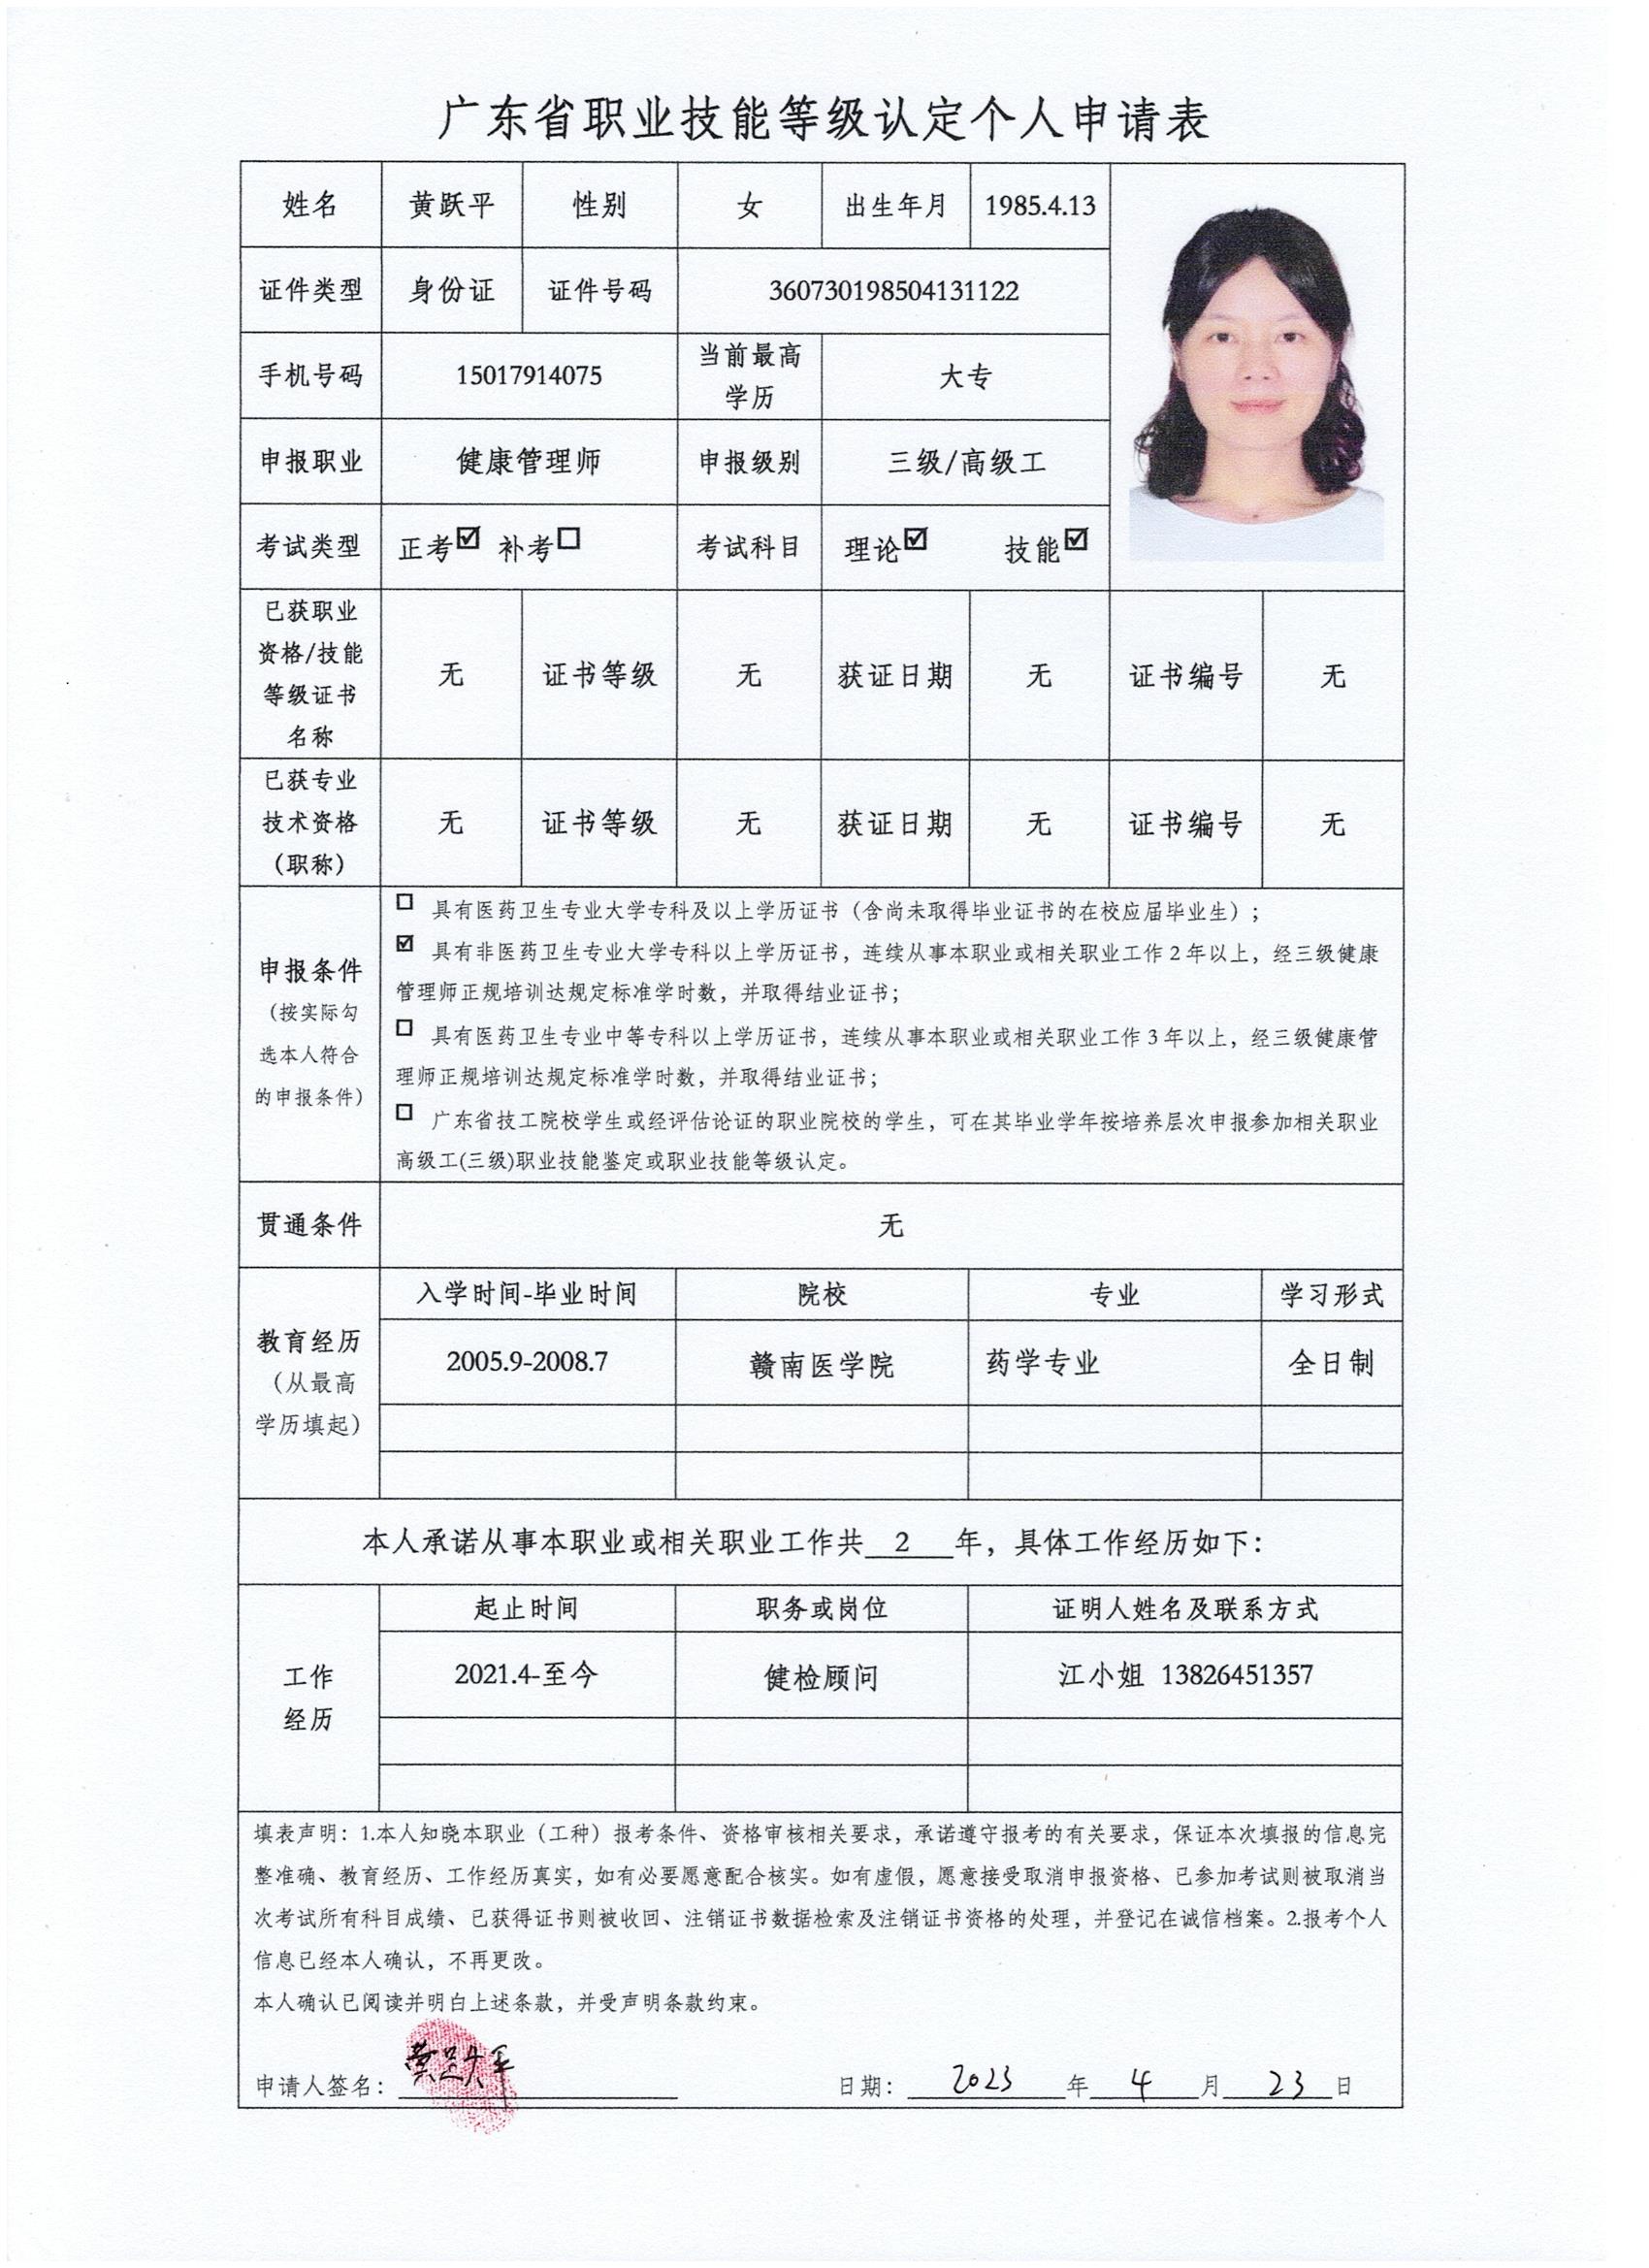 广东省职业技能等级认定个人申请表
姓名 黄跃平 性别 女 出生年月 1985.4.13
证件类型 身份证 证件号码 360730198504131122
手机号码 15017914075 当前最高学历 大专
申报职业 健康管理师 申报级别 三级/高级工
考试类型 正考☑ 补考☐ 考试科目 理论☑ 技能☑
已获职业
资格/技能
等级证书
名称
无 证书等级 无 获证日期 无 证书编号 无
已获专业
技术资格
（职称）
无 证书等级 无 获证日期 无 证书编号 无
申报条件
（按实际勾
选本人符合
的申报条件）
☐ 具有医药卫生专业大学专科及以上学历证书（含尚未取得毕业证书的在校应届毕业生）；
☑ 具有非医药卫生专业大学专科以上学历证书，连续从事本职业或相关职业工作 2 年以上，经三级健康
管理师正规培训达规定标准学时数，并取得结业证书；
☐ 具有医药卫生专业中等专科以上学历证书，连续从事本职业或相关职业工作 3 年以上，经三级健康管
理师正规培训达规定标准学时数，并取得结业证书；
☐ 广东省技工院校学生或经评估论证的职业院校的学生，可在其毕业学年按培养层次申报参加相关职业
高级工(三级)职业技能鉴定或职业技能等级认定。
贯通条件 无
教育经历
（从最高
学历填起）
入学时间-毕业时间 院校 专业 学习形式
2005.9-2008.7 赣南医学院 药学专业 全日制
本人承诺从事本职业或相关职业工作共 2 年，具体工作经历如下：
工作
经历
起止时间 职务或岗位 证明人姓名及联系方式
2021.4-至今 健检顾问 江小姐 13826451357
填表声明：1.本人知晓本职业（工种）报考条件、资格审核相关要求，承诺遵守报考的有关要求，保证本次填报的信息完
整准确、教育经历、工作经历真实，如有必要愿意配合核实。如有虚假，愿意接受取消申报资格、已参加考试则被取消当
次考试所有科目成绩、已获得证书则被收回、注销证书数据检索及注销证书资格的处理，并登记在诚信档案。2.报考个人
信息已经本人确认，不再更改。
本人确认已阅读并明白上述条款，并受声明条款约束。
申请人签名： 黄跃平 日期： 2023 年 4 月 23 日